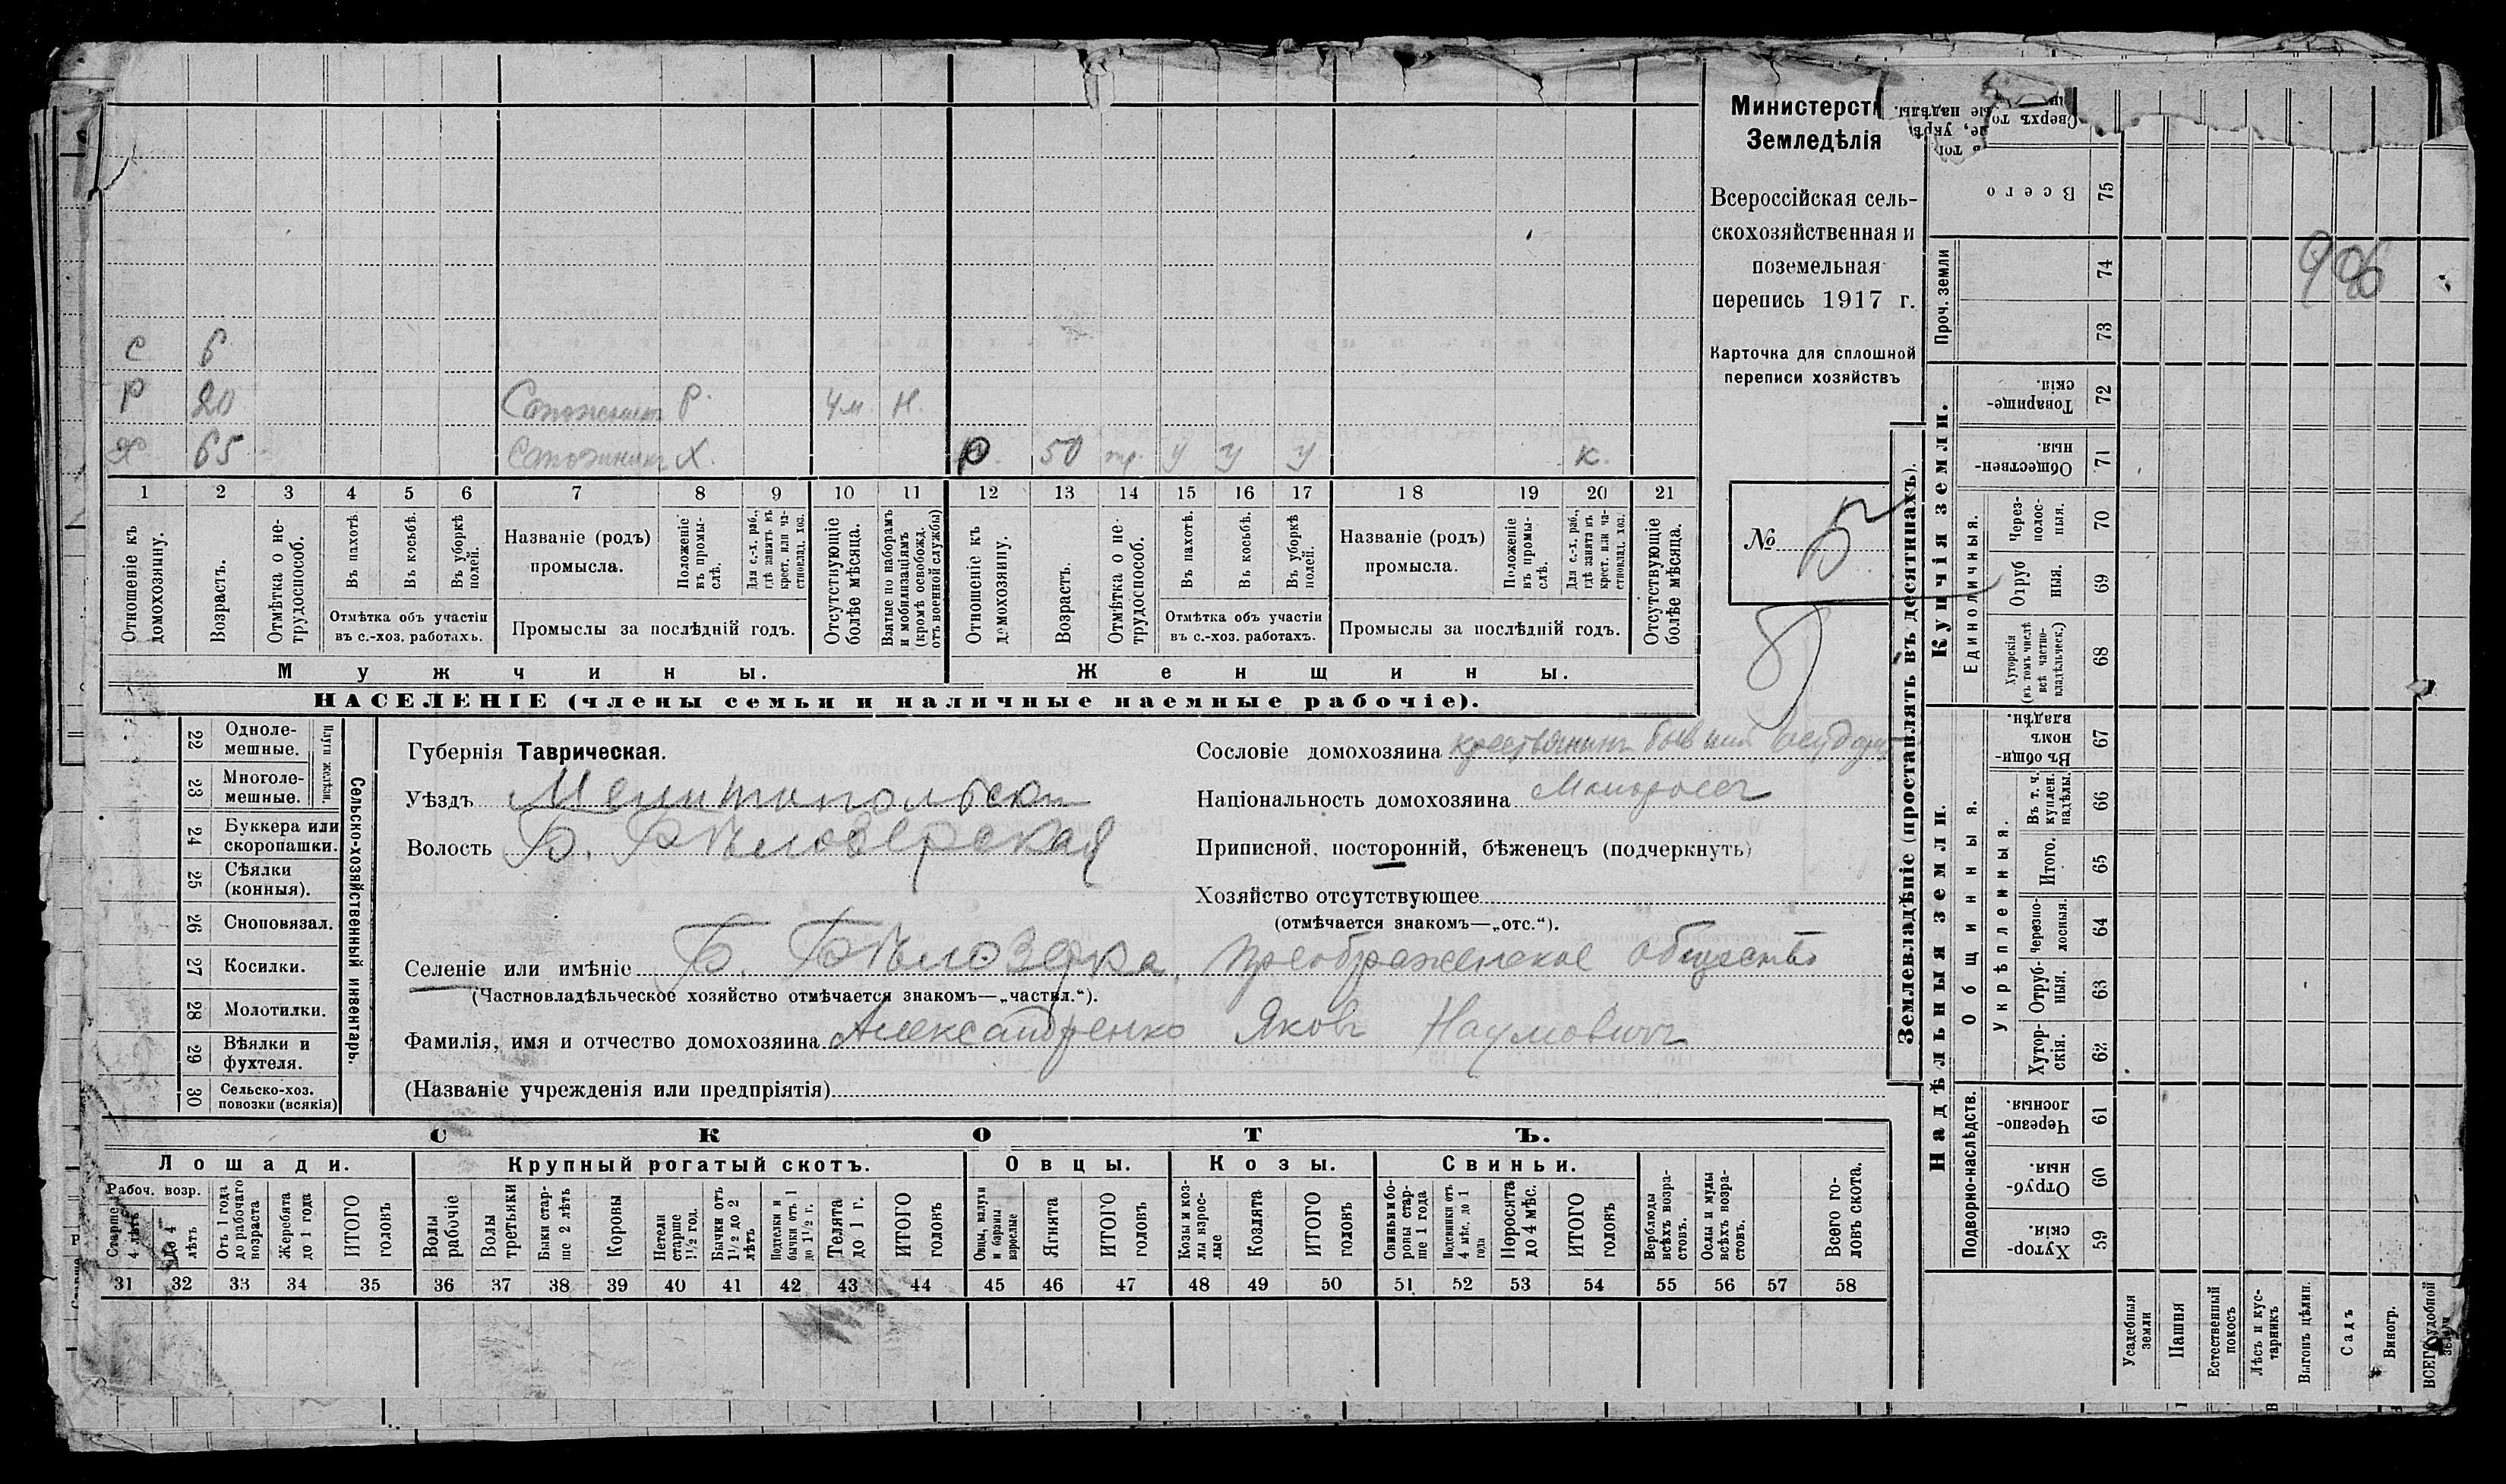 с 6
Р 20 Сапожникъ Р. 4 м. Н.
Х 65 Сапожникъ Х. Р 50 у у у к.
1 2 3 4 5 6 7 8 9 10 11 12 13 14 15 16 17 18 19 20 21
Отношеніе къ домохозяину.
Возрастъ.
Отмѣтка о не-трудоспособ.
Въ пахотѣ.
Въ косьбѣ.
Въ уборкѣ полей.
Отмѣтка объ участіи
въ с.-хоз. работахъ.
Названіе (родъ)
промысла.
Положеніе въ промы-слѣ.
Для с.-х. раб., гдѣ занятъ въ крест. или ча-стновлад. хоз.
Промыслы за послѣдній годъ.
Отсутствующіе болѣе мѣсяца.
Взятые по наборамъ и мобилизаціямъ (кромѣ освобожд. отъ военной службы)
Отношеніе къ домохозяину.
Возрастъ.
Отмѣтка о не-трудоспособ.
Въ пахотѣ.
Въ косьбѣ.
Въ уборкѣ полей.
Отмѣтка объ участіи
въ с.-хоз. работахъ.
Названіе (родъ)
промысла.
Положеніе въ промы-слѣ.
Для с.-х. раб., гдѣ занята въ крест. или ча-стновлад. хоз.
Промыслы за послѣдній годъ.
Отсутствующіе болѣе мѣсяца.
Мужчины.
Женщины.
НАСЕЛЕНІЕ (члены семьи и наличные наемные рабочіе).
Министерств
Земледѣлія
Всероссійская сель-
скохозяйственная и
поземельная
перепись 1917 г.
Карточка для сплошной
переписи хозяйствъ
№ 5
8
22 Одноле-мешные.
23 Многоле-мешные.
Плуги желѣзн.
24 Буккера или скоропашки.
25 Сѣялки (конныя).
26 Сноповязал.
27 Косилки.
28 Молотилки.
29 Вѣялки и фухтеля.
30 Сельско-хоз. повозки (всякія)
Сельско-хозяйственный инвентарь.
Губернія Таврическая.
Уѣздъ Мелитопольск
Волость Б. Бѣлозерская
Селеніе или имѣніе Б. Бѣлозерка, Преображенское общество
(Частновладѣльческое хозяйство отмѣчается знакомъ—„частвл.“).
Фамилія, имя и отчество домохозяина Александренко Яковъ Наумовичъ
(Названіе учрежденія или предпріятія)
Сословіе домохозяина крестьянинъ бывший
Національность домохозяина Малороссъ
Приписной, посторонній, бѣженецъ (подчеркнуть)
Хозяйство отсутствующее
(отмѣчается знакомъ—„отс.“).
СКОТЪ.
Лошади. Крупный рогатый скотъ. Овцы. Козы. Свиньи.
Рабоч. возр.
Старше 4 лѣтъ
До 4 лѣтъ
Отъ 1 года до рабочаго возраста
Жеребята до 1 года
ИТОГО головъ
Волы рабочіе
Волы третьяки
Быки стар-ше 2 лѣтъ
Коровы
Нетели старше 1½ год.
Бычки отъ 1½ до 2 лѣтъ
Подтелки и бычки отъ 1 до 1½ г.
Телята до 1 г.
ИТОГО головъ
Овцы, валухи и бараны взрослые
Ягнята
ИТОГО головъ
Козы и коз-лы взрос-лые
Козлята
ИТОГО головъ
Свиньи и бо-ровы стар-ше 1 года
Подсвинки отъ 4 мѣс. до 1 года
Поросята до 4 мѣс.
ИТОГО головъ
Верблюды всѣхъ возра-стовъ.
Ослы и мулы всѣхъ возра-стовъ.
Всего го-ловъ скота.
31 32 33 34 35 36 37 38 39 40 41 42 43 44 45 46 47 48 49 50 51 52 53 54 55 56 57 58
Землевладѣніе (проставлять въ десятинахъ).
Купчія земли.
Надѣльныя земли.
Сверхъ то
Всего 75
Проч. земли
74
73
Товарище-скія. 72
Обществен-ныя. 71
Единоличныя.
Через-полос-ныя. 70
Отруб ныя. 69
Хуторскія (въ томъ числѣ всѣ частно-владѣльческ.) 68
Общинныя.
Въ общи-номъ владѣн. 67
Укрѣпленныя.
Въ т. ч. куплен. надѣлы. 66
Итого. 65
Черезпо-лосныя. 64
Отруб-ныя. 63
Хутор-скія. 62
Подворно-наслѣдств.
Черезпо-лосныя. 61
Отруб-ныя. 60
Хутор-скія. 59
Усадебныя земли
Пашня
Естественный покосъ
Лѣсъ и кус-тарникъ
Выгонъ цѣлин.
Садъ
Виногр.
ВСЕГО удобной земли
996